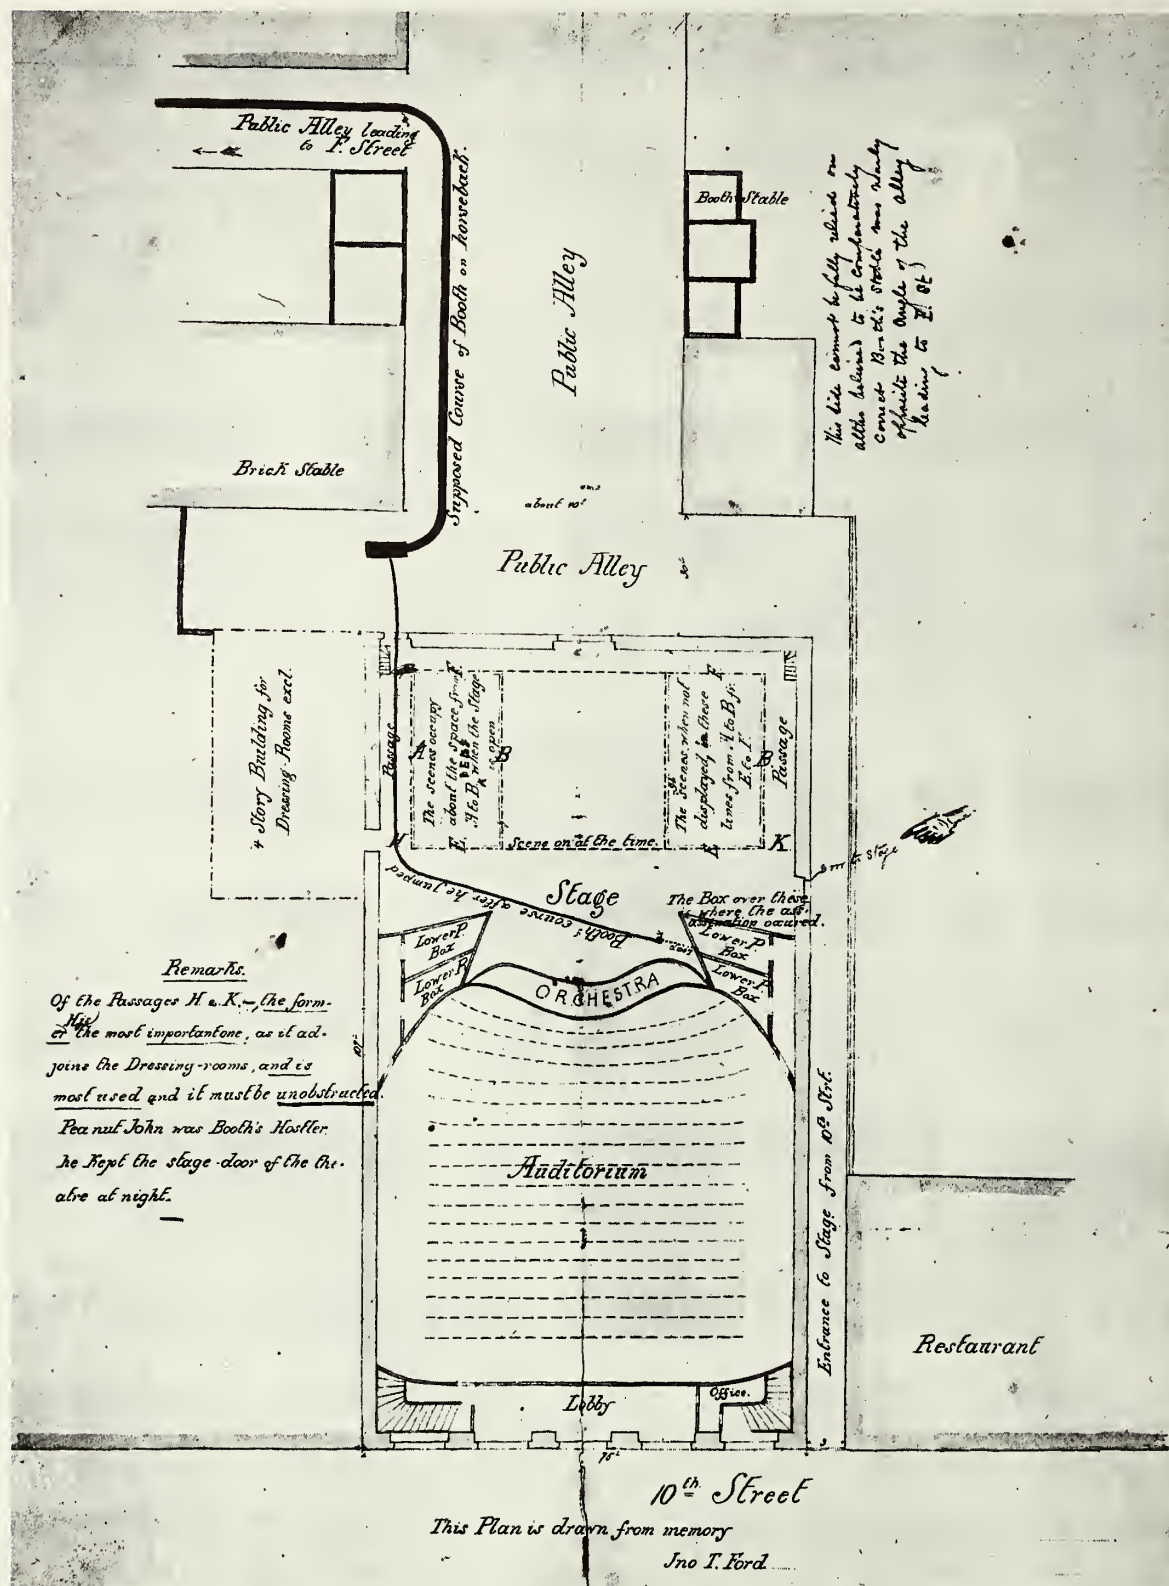 Public Alley leading
to F. Street
Supposed Course of Booth on horseback.
Public Alley
Booth Stable
This side cannot be fully relied on
altho believed to be comparatively
correct Booth's stable was nearly
opposite the angle of the alley
leading to F. St)
Brick Stable
about 40'
Public Alley
30'
4 Story Building for
Dressing-Rooms excl.
Passage
The scenes occupy
about the space from
A to B, when the Stage
is open
F
A
B
E
H
The scenes when not
displayed, in these
lines from A to B fr.
E to F.
F
B
E
K
Passage
Scene on at the time.
to stage
Booth's course after he jumped
Stage
The Box over these
where the ass-
assination occured.
Lower P.
Box
Lower P.
Box
Lower P.
Box
Lower P.
Box
ORCHESTRA
Remarks.
Of the Passages H & K.–, the form-
er (H is) the most importantone, as it ad-
joins the Dressing-rooms, and is
most used and it must be unobstructed.
Pea nut John was Booth's Hostler.
he Kept the stage-door of the the-
atre at night.
Auditorium
Entrance to Stage from 10th Strt.
Restaurant
Lobby
Office.
10th Street
This Plan is drawn from memory
Jno T. Ford